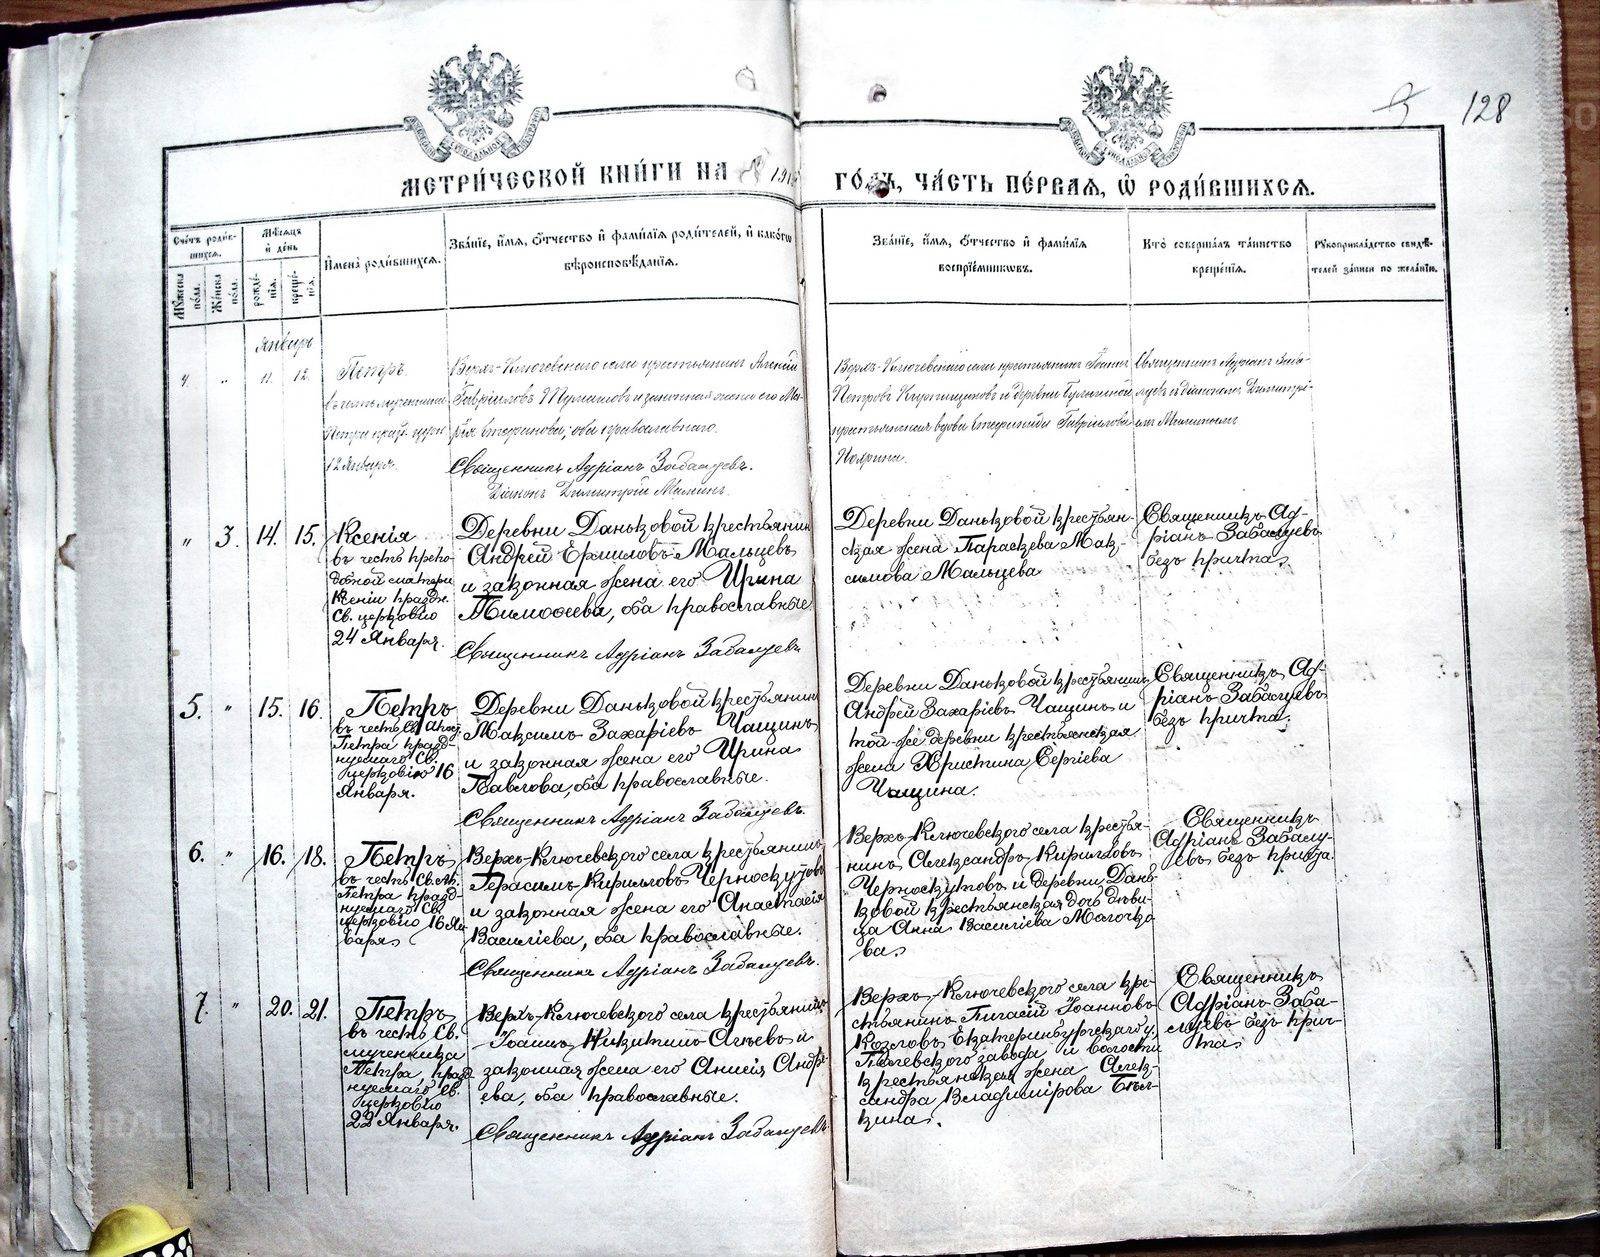 128
МЕТРИ́ЧЕСКОЙ КНИ́ГИ НА 191 ГО́ДЪ, ЧА́СТЬ ПЕ́РВАЯ, Ѡ҆ РОДИ́ВШИХСЯ.
Сче́тъ роди́в-
шихся.
Мѣ́сяцъ
и҆ де́нь
Мꙋ́жеска
по́ла.
Же́нска
по́ла.
рожде́-
нїя.
креще́-
нїя.
И҆мена̀ роди́вшихся.
Зва́нїе, и҆́мя, ѻ҆́тчество и҆ фами́лїя роди́телей, и҆ како́гѡ
вѣроисповѣ́данїя.
Зва́нїе, и҆́мя, ѻ҆́тчество и҆ фами́лїя
воспрїе́мникѡвъ.
Кто̀ соверша́лъ та́инство
креще́нїя.
Рꙋкоприкла́дство свидѣ́-
телей за́писи по жела́нїю.
Январь
4. " 11. 12.
Петръ.
въ честь мученика
Петра празд. церк.
12 Января.
Верхъ-Ключевскаго села крестьянинъ
Гавріиловъ и законная жена его Ма-
рія Стефанова, оба православнаго.
Священникъ Адріанъ Забалуевъ.
Діаконъ Димитрій Мининъ.
Верхъ-Ключевскаго села крестьянинъ Іоаннъ
Петровъ и деревни
крестьянская вдова Гавріилова
Священникъ Адріанъ Заба-
луевъ и діаконъ Димитрі-
" 3. 14. 15.
Ксенія
въ честь препо-
добной матери
Ксеніи праздн.
Св. церковію
24 Января.
Деревни Даньковой крестьянинъ
Андрей Ермиловъ Мальцевъ
и законная жена его Ирина
Тимоѳеева, оба православные
Священникъ Адріанъ Забалуевъ
Деревни Даньковой крестьян-
ская жена Параскева Мак-
симова Мальцева
Священникъ Ад-
ріанъ Забалуевъ
безъ причта.
5. " 15. 16.
Петръ
въ честь Св. Апост.
Петра празд-
нуемаго Св.
церковію 16
Января.
Деревни Даньковой крестьянинъ
Максимъ Захаріевъ Чащинъ
и законная жена его Ирина
Павлова, оба православные.
Священникъ Адріанъ Забалуевъ.
Деревни Даньковой крестьянинъ
Андрей Захаріевъ Чащинъ и
той-же деревни крестьянская
жена Христина Сергіева
Чащина.
Священникъ Ад-
ріанъ Забалуевъ
безъ причта.
6. " 16. 18.
Петръ
въ честь Св. Ап.
Петра празд-
нуемаго Св.
церковію 16 Ян-
варя
Верхъ-Ключевскаго села крестьянинъ
Герасимъ Кирилловъ Черноскутовъ
и законная жена его Анастасія
Василіева, оба православные.
Священникъ Адріанъ Забалуевъ.
Верхъ-Ключевскаго села крестья-
нинъ Александръ Кирилловъ
Черноскутовъ и деревни Дань-
ковой крестьянская дочь дѣви-
ца Анна Василіева Молочко-
ва.
Священникъ
Адріанъ Забалу-
евъ безъ причта.
7. " 20. 21.
Петръ
въ честь Св.
мученика
Петра празд-
нуемаго Св.
церковію
22 Января.
Верхъ-Ключевскаго села крестьянинъ
Іоаннъ Никитинъ Агѣевъ и
законная жена его Анисія Андре-
ева, оба православные.
Священникъ Адріанъ Забалуевъ
Верхъ-Ключевскаго села кре-
стьянинъ Пигасій Іоанновъ
Козловъ, Екатеринбургскаго у.,
Полевскаго завода и волости
крестьянская жена Алек-
сандра Владимірова Бѣл-
кина.
Священникъ
Адріанъ Заба-
луевъ безъ прич-
та.